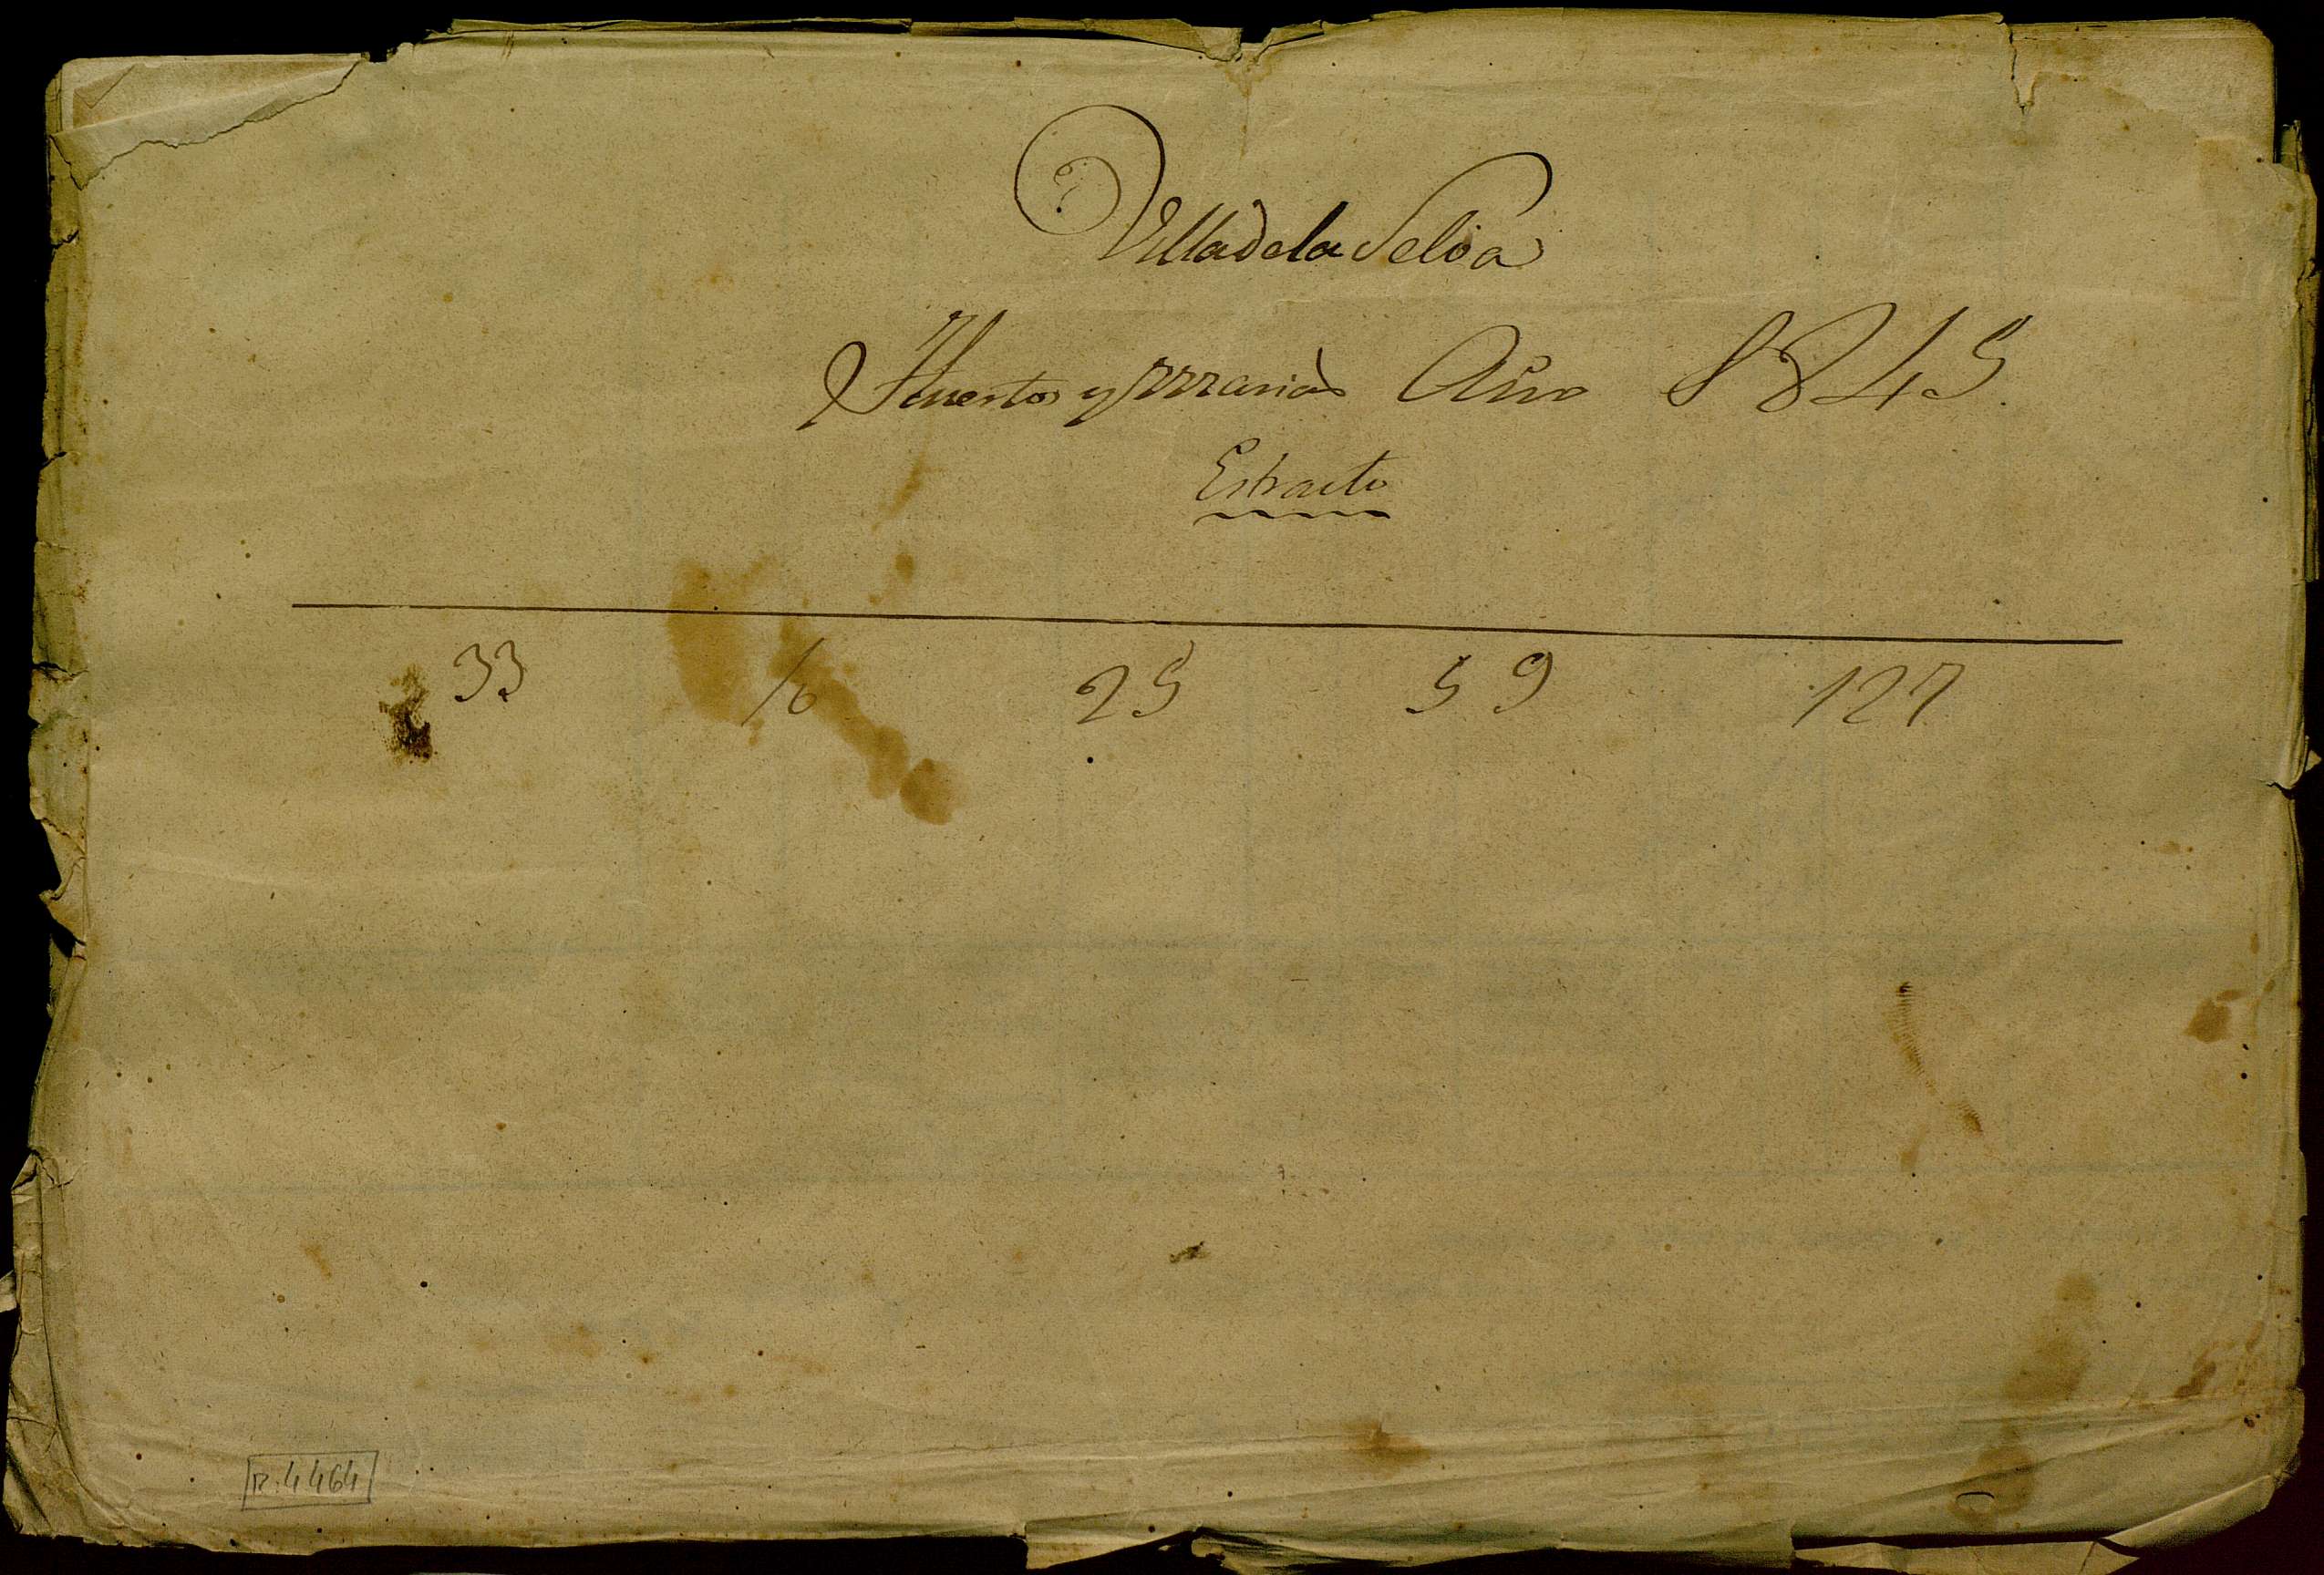 Villa de la Selva
Huertos y Año 1845.
Estracto
33 16 25 59 127
R. 4464